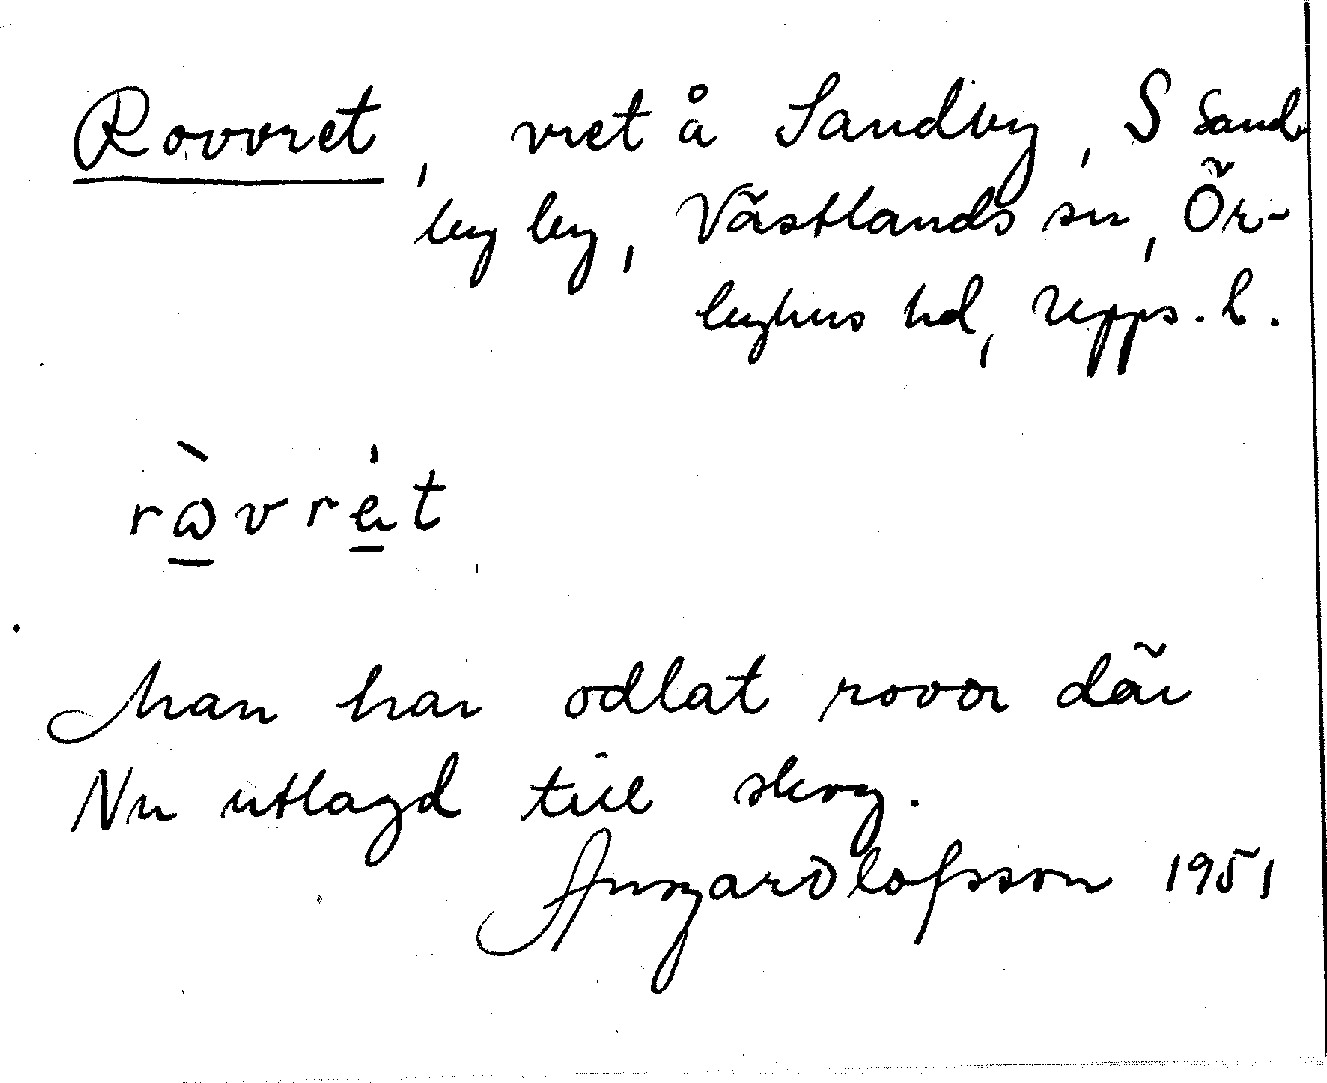 Rovvret, vret å Sandby, S Sand
by by, Västlands sn, Ör-
byhus hd, Upps. l.
ròvret
Man har odlat rovor där
Nu utlagd till skog.
Ansgar Olofsson 1951